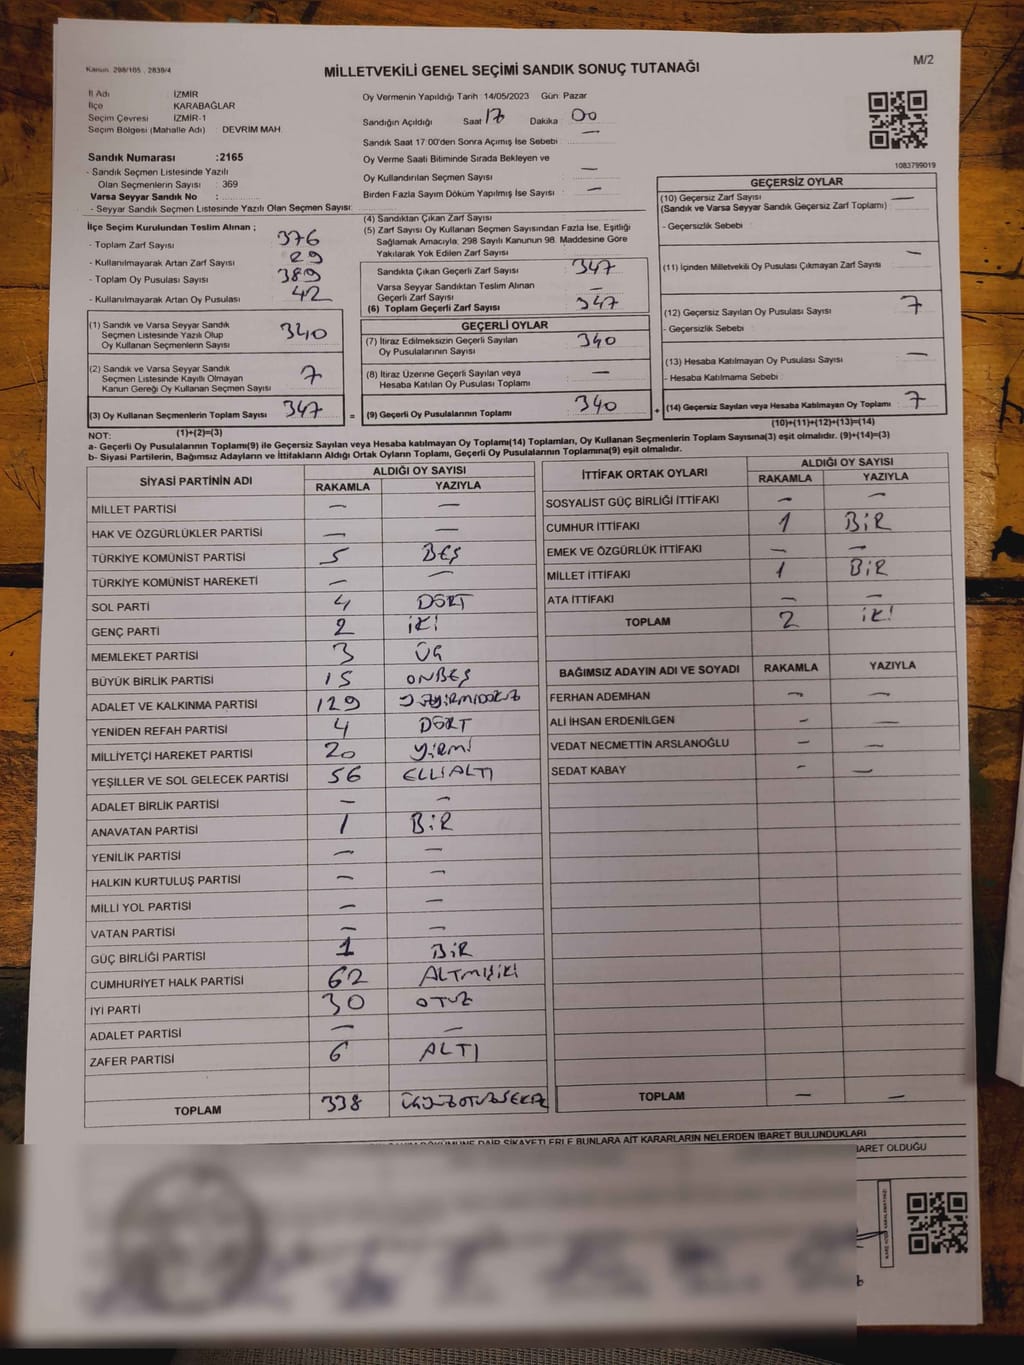 Kanun 298/105 . 2839/4
M/2
MİLLETVEKİLİ GENEL SEÇİMİ SANDIK SONUÇ TUTANAĞI
İl Adı : İZMİR
İlçe : KARABAĞLAR
Seçim Çevresi : İZMİR-1
Seçim Bölgesi (Mahalle Adı) : DEVRİM MAH.
Sandık Numarası :2165
- Sandık Seçmen Listesinde Yazılı
Olan Seçmenlerin Sayısı : 369
Varsa Seyyar Sandık No :
- Seyyar Sandık Seçmen Listesinde Yazılı Olan Seçmen Sayısı:
Oy Vermenin Yapıldığı Tarih 14/05/2023 Gün: Pazar
Sandığın Açıldığı Saat 17 Dakika 00
Sandık Saat 17:00'den Sonra Açılmış İse Sebebi : —
Oy Verme Saati Bitiminde Sırada Bekleyen ve
Oy Kullandırılan Seçmen Sayısı : —
Birden Fazla Sayım Döküm Yapılmış İse Sayısı : —
1083799019
İlçe Seçim Kurulundan Teslim Alınan ;
- Toplam Zarf Sayısı : 376
- Kullanılmayarak Artan Zarf Sayısı : 29
- Toplam Oy Pusulası : 389
- Kullanılmayarak Artan Oy Pusulası : 42
(1) Sandık ve Varsa Seyyar Sandık
Seçmen Listesinde Yazılı Olup
Oy Kullanan Seçmenlerin Sayısı : 340
(2) Sandık ve Varsa Seyyar Sandık
Seçmen Listesinde Kayıtlı Olmayan
Kanun Gereği Oy Kullanan Seçmen Sayısı : 7
(3) Oy Kullanan Seçmenlerin Toplam Sayısı : 347
(1)+(2)=(3)
(4) Sandıktan Çıkan Zarf Sayısı :
(5) Zarf Sayısı Oy Kullanan Seçmen Sayısından Fazla İse, Eşitliği
Sağlamak Amacıyla; 298 Sayılı Kanunun 98. Maddesine Göre
Yakılarak Yok Edilen Zarf Sayısı :
Sandıkta Çıkan Geçerli Zarf Sayısı : 347
Varsa Seyyar Sandıktan Teslim Alınan
Geçerli Zarf Sayısı : —
(6) Toplam Geçerli Zarf Sayısı : 347
GEÇERLİ OYLAR
(7) İtiraz Edilmeksizin Geçerli Sayılan
Oy Pusulalarının Sayısı : 340
(8) İtiraz Üzerine Geçerli Sayılan veya
Hesaba Katılan Oy Pusulası Toplamı : —
= (9) Geçerli Oy Pusulalarının Toplamı : 340
GEÇERSİZ OYLAR
(10) Geçersiz Zarf Sayısı : —
(Sandık ve Varsa Seyyar Sandık Geçersiz Zarf Toplamı)
- Geçersizlik Sebebi :
(11) İçinden Milletvekili Oy Pusulası Çıkmayan Zarf Sayısı : —
(12) Geçersiz Sayılan Oy Pusulası Sayısı : 7
- Geçersizlik Sebebi :
(13) Hesaba Katılmayan Oy Pusulası Sayısı : —
- Hesaba Katılmama Sebebi :
+ (14) Geçersiz Sayılan veya Hesaba Katılmayan Oy Toplamı : 7
(10)+(11)+(12)+(13)=(14)
NOT:
a- Geçerli Oy Pusulalarının Toplamı(9) ile Geçersiz Sayılan veya Hesaba katılmayan Oy Toplamı(14) Toplamları, Oy Kullanan Seçmenlerin Toplam Sayısına(3) eşit olmalıdır. (9)+(14)=(3)
b- Siyasi Partilerin, Bağımsız Adayların ve İttifakların Aldığı Ortak Oyların Toplamı, Geçerli Oy Pusulalarının Toplamına(9) eşit olmalıdır.
SİYASİ PARTİNİN ADI ALDIĞI OY SAYISI
RAKAMLA YAZIYLA
MİLLET PARTİSİ — —
HAK VE ÖZGÜRLÜKLER PARTİSİ — —
TÜRKİYE KOMÜNİST PARTİSİ 5 BEŞ
TÜRKİYE KOMÜNİST HAREKETİ — —
SOL PARTİ 4 DÖRT
GENÇ PARTİ 2 İKİ
MEMLEKET PARTİSİ 3 ÜÇ
BÜYÜK BİRLİK PARTİSİ 15 ONBEŞ
ADALET VE KALKINMA PARTİSİ 129
YENİDEN REFAH PARTİSİ 4 DÖRT
MİLLİYETÇİ HAREKET PARTİSİ 20 YİRMİ
YEŞİLLER VE SOL GELECEK PARTİSİ 56 ELLİALTI
ADALET BİRLİK PARTİSİ — —
ANAVATAN PARTİSİ 1 BİR
YENİLİK PARTİSİ — —
HALKIN KURTULUŞ PARTİSİ — —
MİLLİ YOL PARTİSİ — —
VATAN PARTİSİ — —
GÜÇ BİRLİĞİ PARTİSİ 1 BİR
CUMHURİYET HALK PARTİSİ 62 ALTMIŞİKİ
İYİ PARTİ 30 OTUZ
ADALET PARTİSİ — —
ZAFER PARTİSİ 6 ALTI
TOPLAM 338 ÜÇYÜZOTUZSEKİZ
İTTİFAK ORTAK OYLARI ALDIĞI OY SAYISI
RAKAMLA YAZIYLA
SOSYALİST GÜÇ BİRLİĞİ İTTİFAKI — —
CUMHUR İTTİFAKI 1 BİR
EMEK VE ÖZGÜRLÜK İTTİFAKI — —
MİLLET İTTİFAKI 1 BİR
ATA İTTİFAKI — —
TOPLAM 2 İKİ
BAĞIMSIZ ADAYIN ADI VE SOYADI RAKAMLA YAZIYLA
FERHAN ADEMHAN — —
ALİ İHSAN ERDENİLGEN - —
VEDAT NECMETTİN ARSLANOĞLU — —
SEDAT KABAY - —
TOPLAM — —
DÖKÜMÜNE DAİR ŞİKAYETLERLE BUNLARA AİT KARARLARIN NELERDEN İBARET BULUNDUKLARI
İBARET OLDUĞU